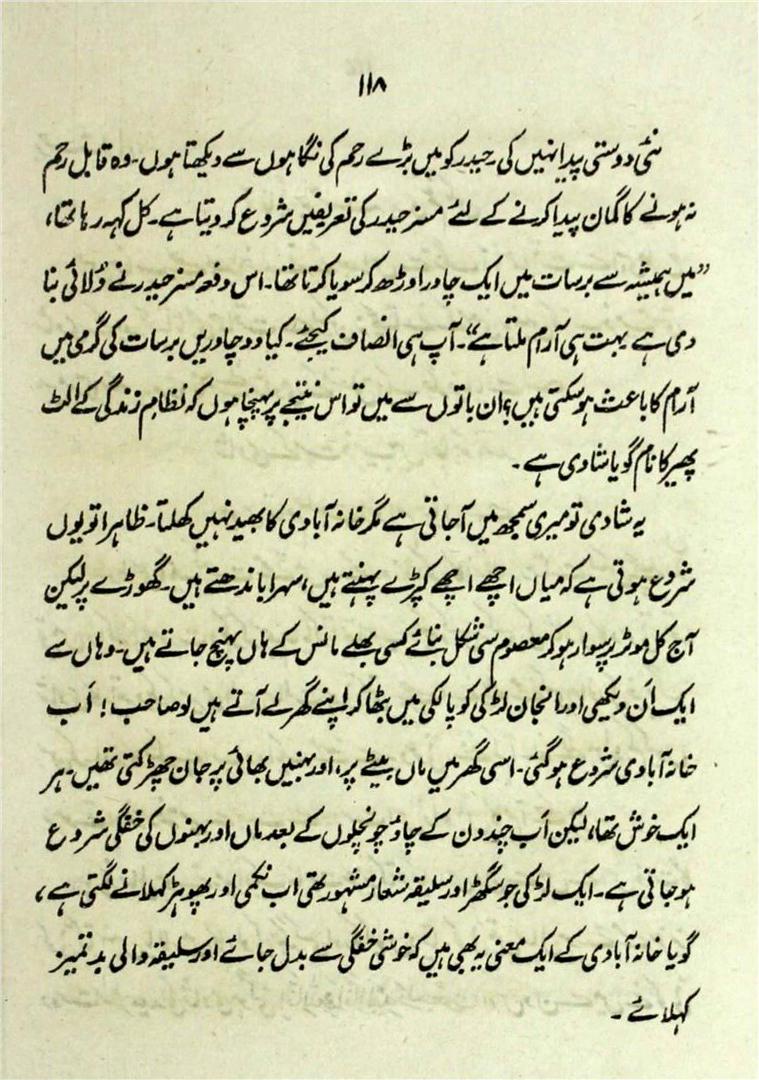 ۱۱۸
نئی دوستی پیدا نہیں کی۔ حیدر کو میں بڑے رحم کی نگاہوں سے دیکھتا ہوں۔ وہ قابل رحم
نہ ہونے کا گمان پیدا کرنے کے لئے مسز حیدر کی تعریفیں شروع کر دیتا ہے۔ کل کہہ رہا تھا،
”میں ہمیشہ سے برسات میں ایک چادر اوڑھ کر سویا کرتا تھا۔ اس دفعہ مسز حیدر نے دُلائی بنا
دی ہے بہت ہی آرام ملتا ہے“۔ آپ ہی انصاف کیجئے۔ کیا دو چادریں برسات کی گرمی میں
آرام کا باعث ہو سکتی ہیں؟ ان باتوں سے میں تو اس نتیجے پر پہنچا ہوں کہ نظام زندگی کے الٹ
پھیر کا نام گویا شادی ہے۔
یہ شادی تو میری سمجھ میں آ جاتی ہے مگر خانہ آبادی کا بھید نہیں کھلتا۔ ظاہرا تو یوں
شروع ہوتی ہے کہ میاں اچھے اچھے کپڑے پہنتے ہیں، سہرا باندھتے ہیں۔ گھوڑے پر لیکن
آج کل موٹر پر سوار ہو کر معصوم سی شکل بنائے کسی بھلے مانس کے ہاں پہنچ جاتے ہیں۔ وہاں سے
ایک اَن دیکھی اور انجان لڑکی کو پالکی میں بٹھا کر اپنے گھر لے آتے ہیں لو صاحب! اَب
خانہ آبادی شروع ہو گئی۔ اسی گھر میں ماں بیٹے پر، اور بہنیں بھائی پر جان چھڑکتی تھیں۔ ہر
ایک خوش تھا، لیکن اَب چند دن کے چاؤ چونچلوں کے بعد ماں اور بہنوں کی خفگی شروع
ہو جاتی ہے۔ ایک لڑکی جو سگھڑ اور سلیقہ شعار مشہور تھی اب نکمی اور پھوہڑ کہلانے لگتی ہے،
گویا خانہ آبادی کے ایک معنی یہ بھی ہیں کہ خوشی خفگی سے بدل جائے اور سلیقہ والی بدتمیز
کہلائے۔